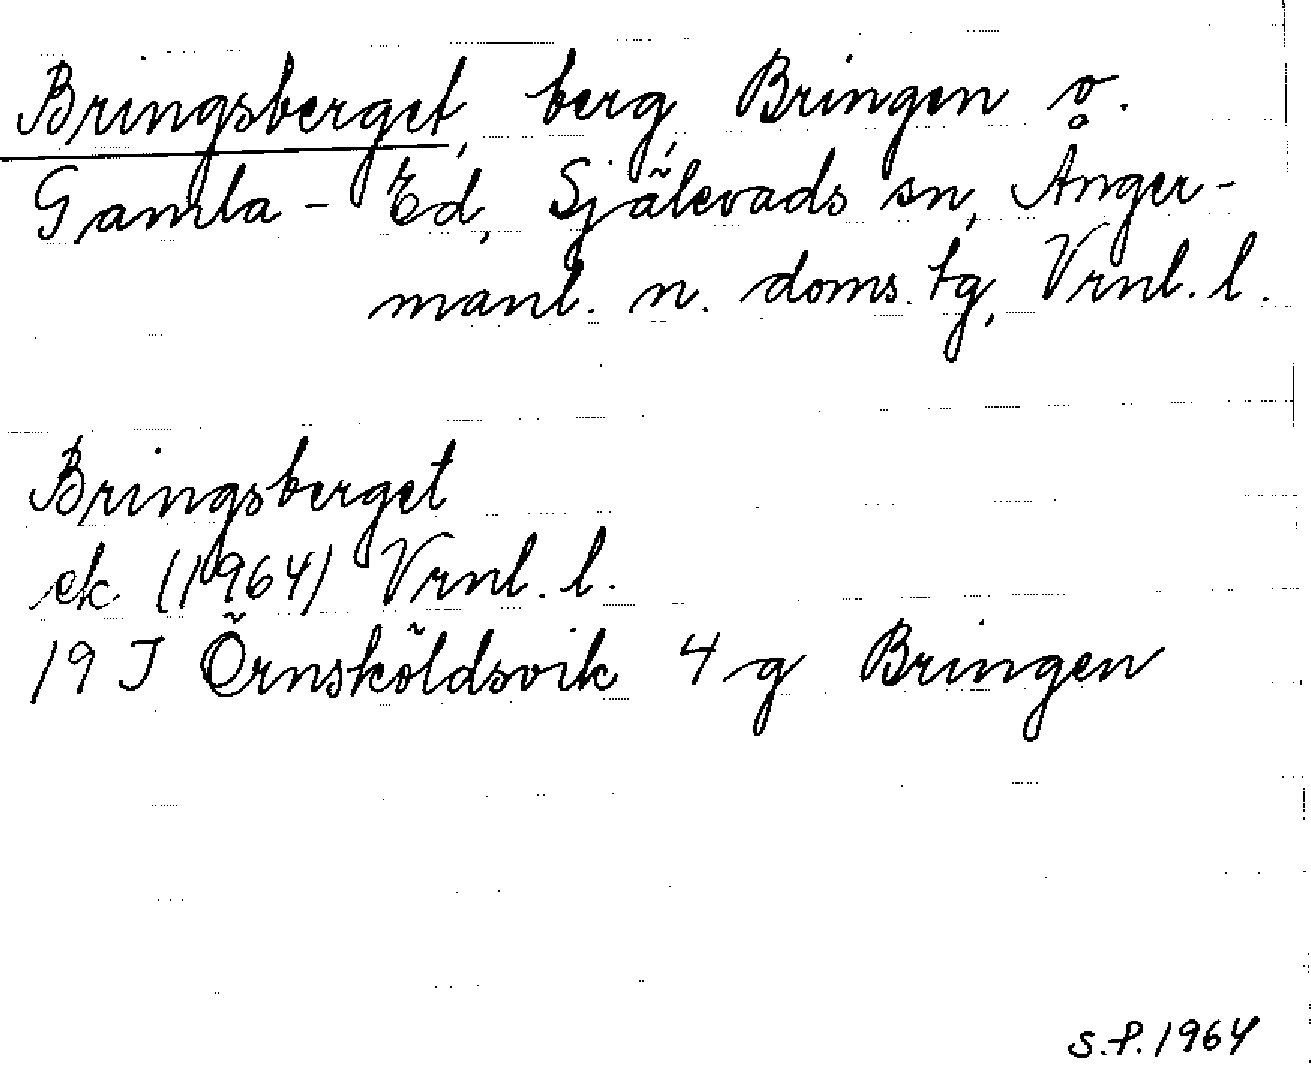 Bringsberget, berg, Bringen o.
Gamla-Ed, Själevads sn, Ånger-
manl. n. doms. tg, Vrnl. l.
Bringsberget
ek (1964) Vrnl. l.
19 J Örnsköldsvik 4 g Bringen
S.P. 1964